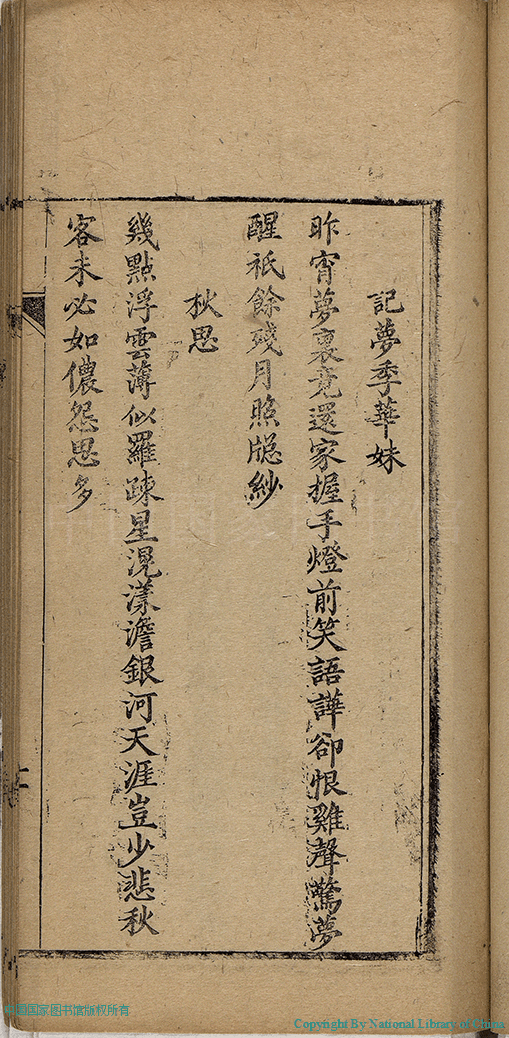 記夢季華妹
昨宵夢裏竟還家握手燈前笑語譁卻恨雞聲驚夢
醒祇餘殘月照牕紗
秋思
幾點浮雲薄似羅疎星滉漾澹銀河天涯豈少悲秋
客未必如儂怨思多
中国国家图书馆版权所有
Copyright By National Library of China